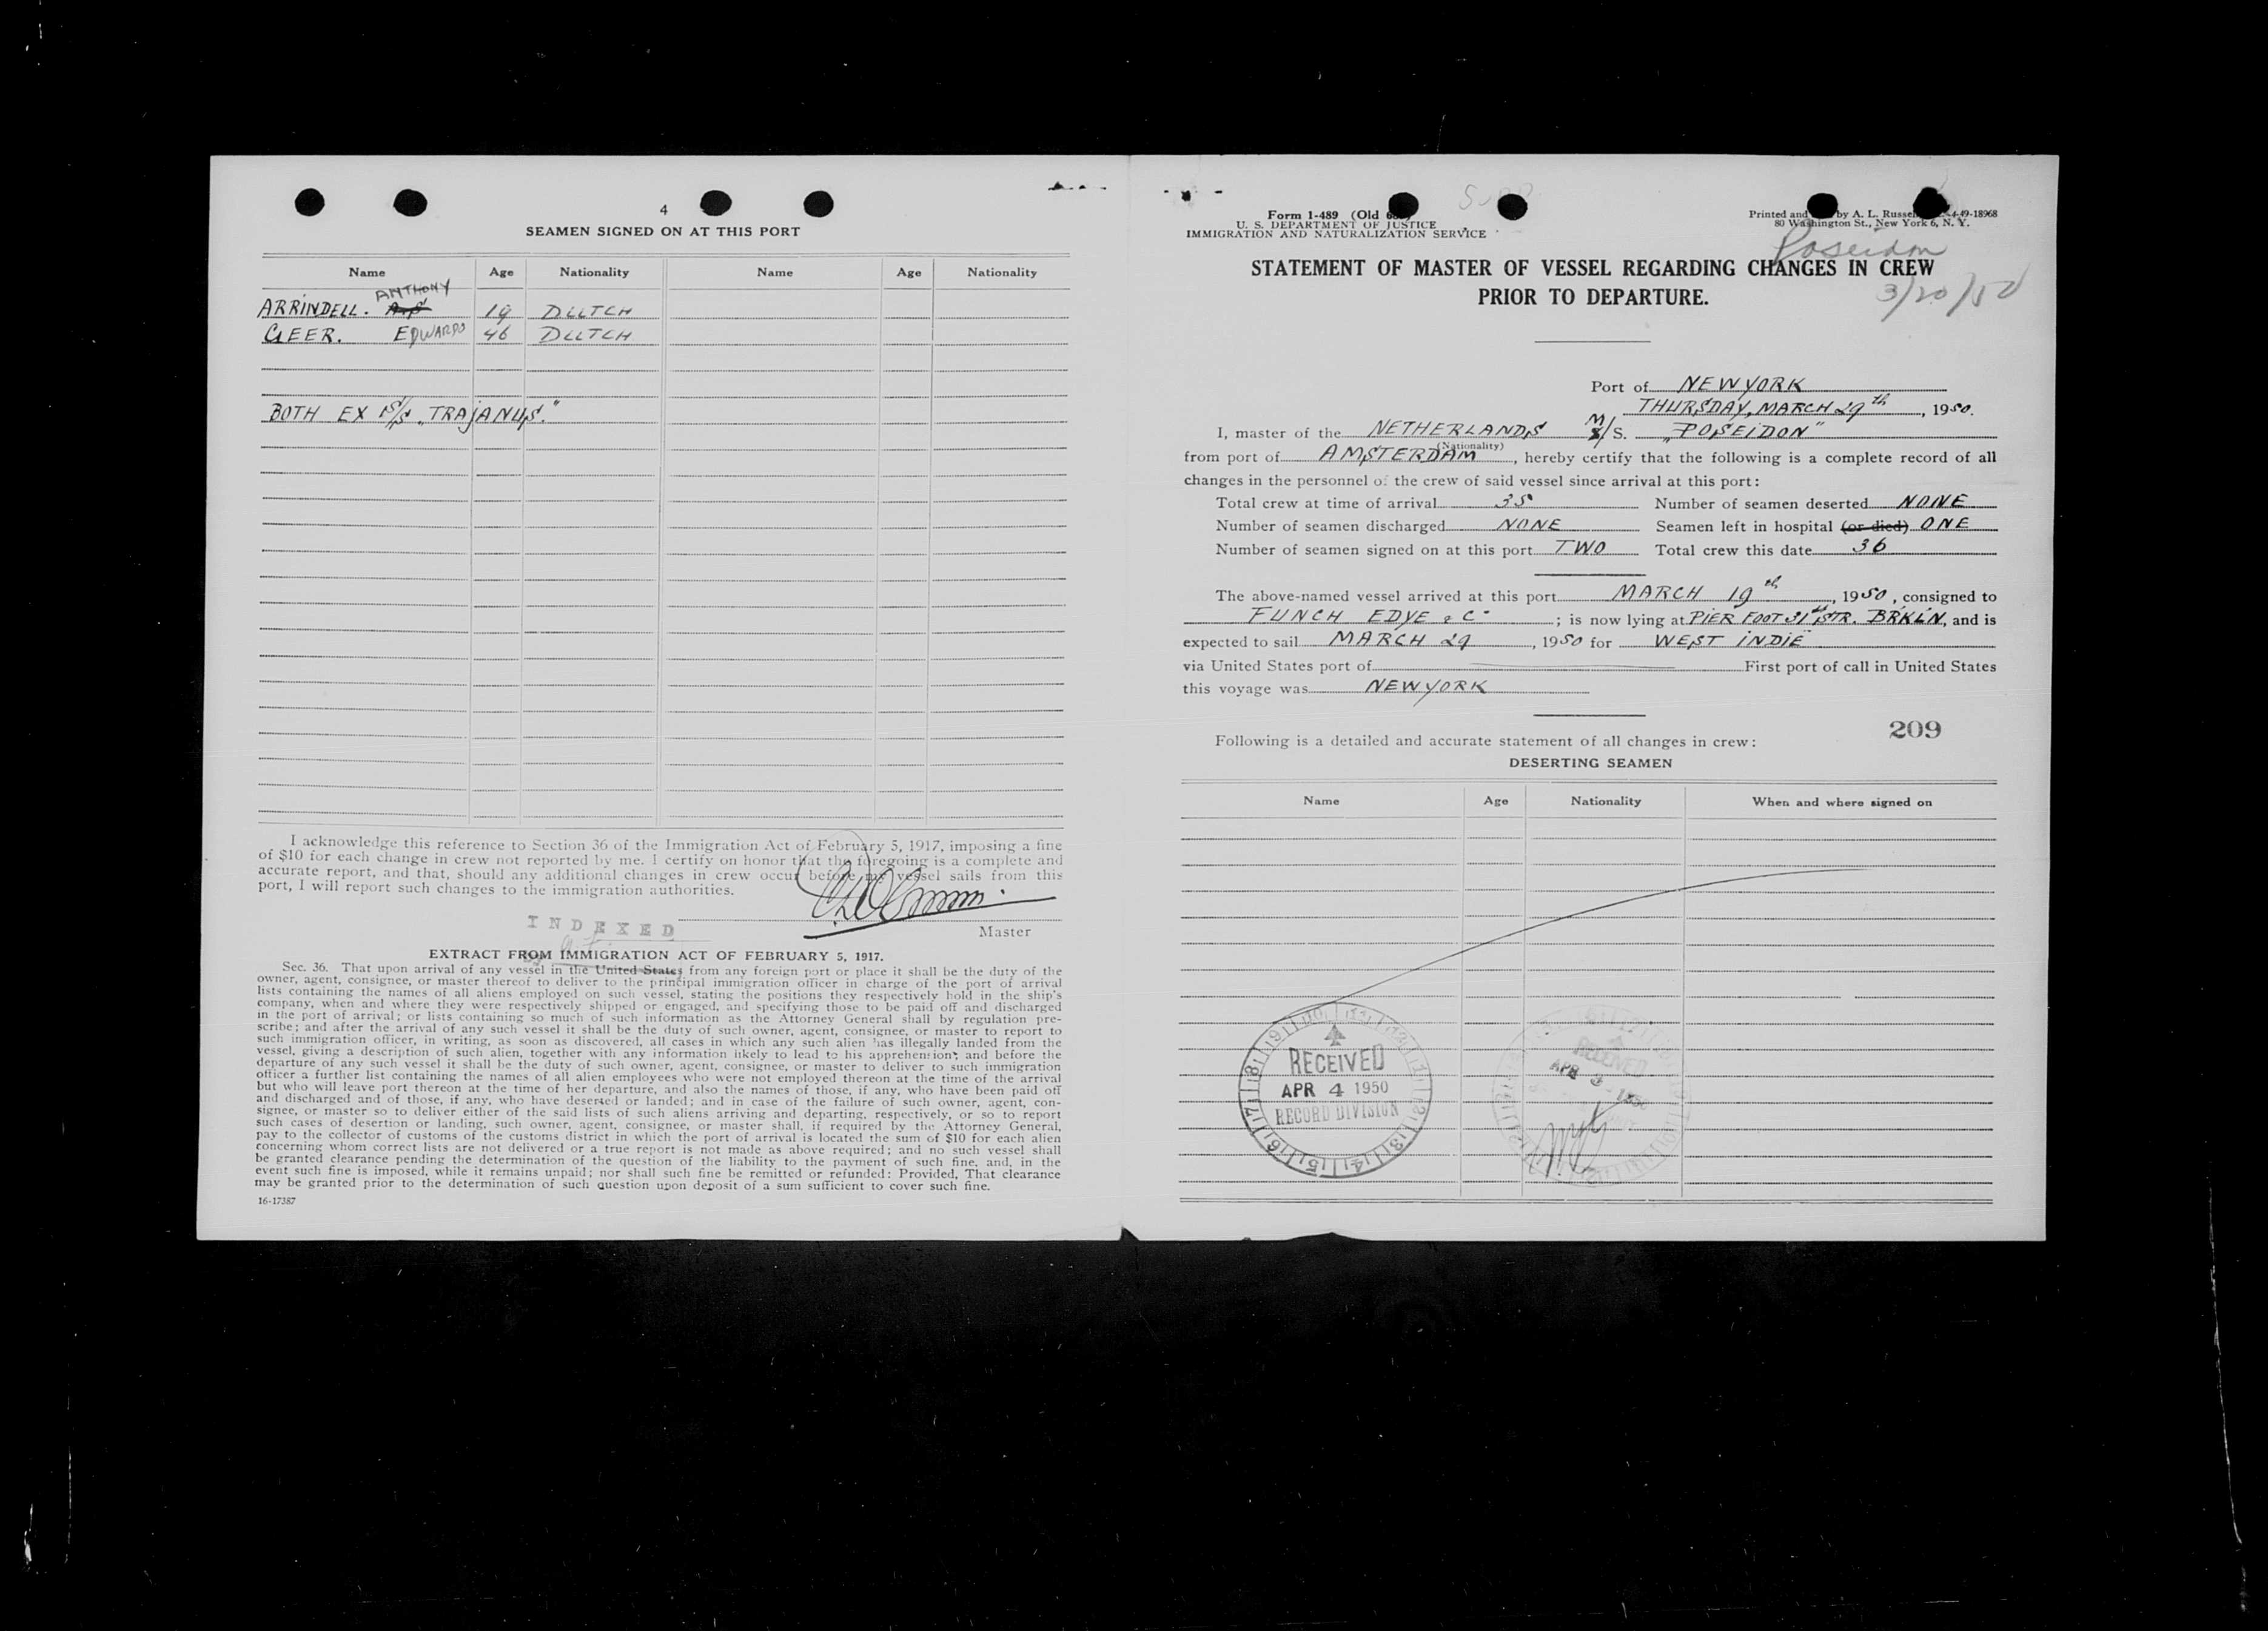 4
SEAMEN SIGNED ON AT THIS PORT
Name Age Nationality Name Age Nationality
ANTHONY
ARRINDELL. 19 DUTCH
GEER. EDWARD 46 DUTCH
BOTH EX S/S „TRAJANUS."
I acknowledge this reference to Section 36 of the Immigration Act of February 5, 1917, imposing a fine
of $10 for each change in crew not reported by me. I certify on honor that the foregoing is a complete and
accurate report, and that, should any additional changes in crew occur before my vessel sails from this
port, I will report such changes to the immigration authorities.
INDEXED
Master
EXTRACT FROM IMMIGRATION ACT OF FEBRUARY 5, 1917.
Sec. 36. That upon arrival of any vessel in the United States from any foreign port or place it shall be the duty of the
owner, agent, consignee, or master thereof to deliver to the principal immigration officer in charge of the port of arrival
lists containing the names of all aliens employed on such vessel, stating the positions they respectively hold in the ship's
company, when and where they were respectively shipped or engaged, and specifying those to be paid off and discharged
in the port of arrival; or lists containing so much of such information as the Attorney General shall by regulation pre-
scribe; and after the arrival of any such vessel it shall be the duty of such owner, agent, consignee, or master to report to
such immigration officer, in writing, as soon as discovered, all cases in which any such alien has illegally landed from the
vessel, giving a description of such alien, together with any information likely to lead to his apprehension; and before the
departure of any such vessel it shall be the duty of such owner, agent, consignee, or master to deliver to such immigration
officer a further list containing the names of all alien employees who were not employed thereon at the time of the arrival
but who will leave port thereon at the time of her departure, and also the names of those, if any, who have been paid off
and discharged and of those, if any, who have deserted or landed; and in case of the failure of such owner, agent, con-
signee, or master so to deliver either of the said lists of such aliens arriving and departing, respectively, or so to report
such cases of desertion or landing, such owner, agent, consignee, or master shall, if required by the Attorney General,
pay to the collector of customs of the customs district in which the port of arrival is located the sum of $10 for each alien
concerning whom correct lists are not delivered or a true report is not made as above required; and no such vessel shall
be granted clearance pending the determination of the question of the liability to the payment of such fine, and, in the
event such fine is imposed, while it remains unpaid; nor shall such fine be remitted or refunded: Provided, That clearance
may be granted prior to the determination of such question upon deposit of a sum sufficient to cover such fine.
16-17387
Form 1-489 (Old
U. S. DEPARTMENT OF JUSTICE
IMMIGRATION AND NATURALIZATION SERVICE
Printed and by A. L. Russell 4-49-18968
80 Washington St., New York 6, N. Y.
Poseidon
3/20/50
STATEMENT OF MASTER OF VESSEL REGARDING CHANGES IN CREW
PRIOR TO DEPARTURE.
Port of NEW YORK
THURSDAY, MARCH 29th, 1950.
I, master of the NETHERLANDS M/S. „POSEIDON"
(Nationality)
from port of AMSTERDAM, hereby certify that the following is a complete record of all
changes in the personnel of the crew of said vessel since arrival at this port:
Total crew at time of arrival 35 Number of seamen deserted NONE
Number of seamen discharged NONE Seamen left in hospital (or died) ONE
Number of seamen signed on at this port TWO Total crew this date 36
The above-named vessel arrived at this port MARCH 19th, 1950, consigned to
FUNCH EDYE & Co; is now lying at PIER FOOT 31st STR. BRKLN, and is
expected to sail MARCH 29, 1950 for WEST INDIË
via United States port of First port of call in United States
this voyage was NEW YORK
209
Following is a detailed and accurate statement of all changes in crew:
DESERTING SEAMEN
Name Age Nationality When and where signed on
RECEIVED
APR 4 1950
RECORD DIVISION
RECEIVED
APR 3 1950